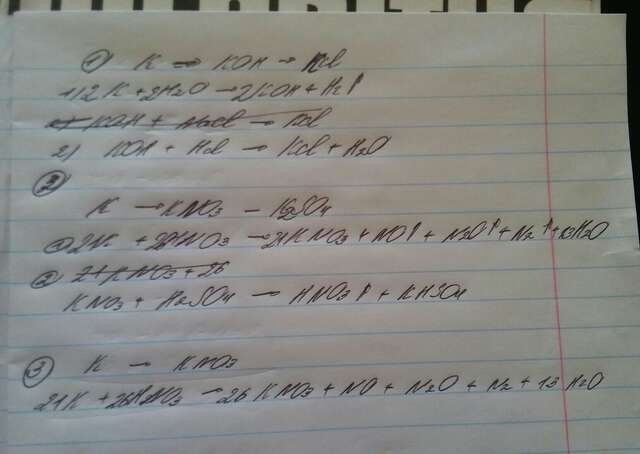 ① K → KOH → KCl
1) 2K + 2H2O → 2KOH + H2↑
KOH + → KCl
2) KOH + HCl → KCl + H2O
②
K → KNO3 – K2SO4
① 21K + 26HNO3 → 21KNO3 + NO↑ + N2O↑ + N2↑ + 13H2O
② 21KNO3 + 26
KNO3 + H2SO4 → HNO3↑ + KHSO4
③ K → KNO3
21K + 26HNO3 → 26KNO3 + NO + N2O + N2 + 13H2O